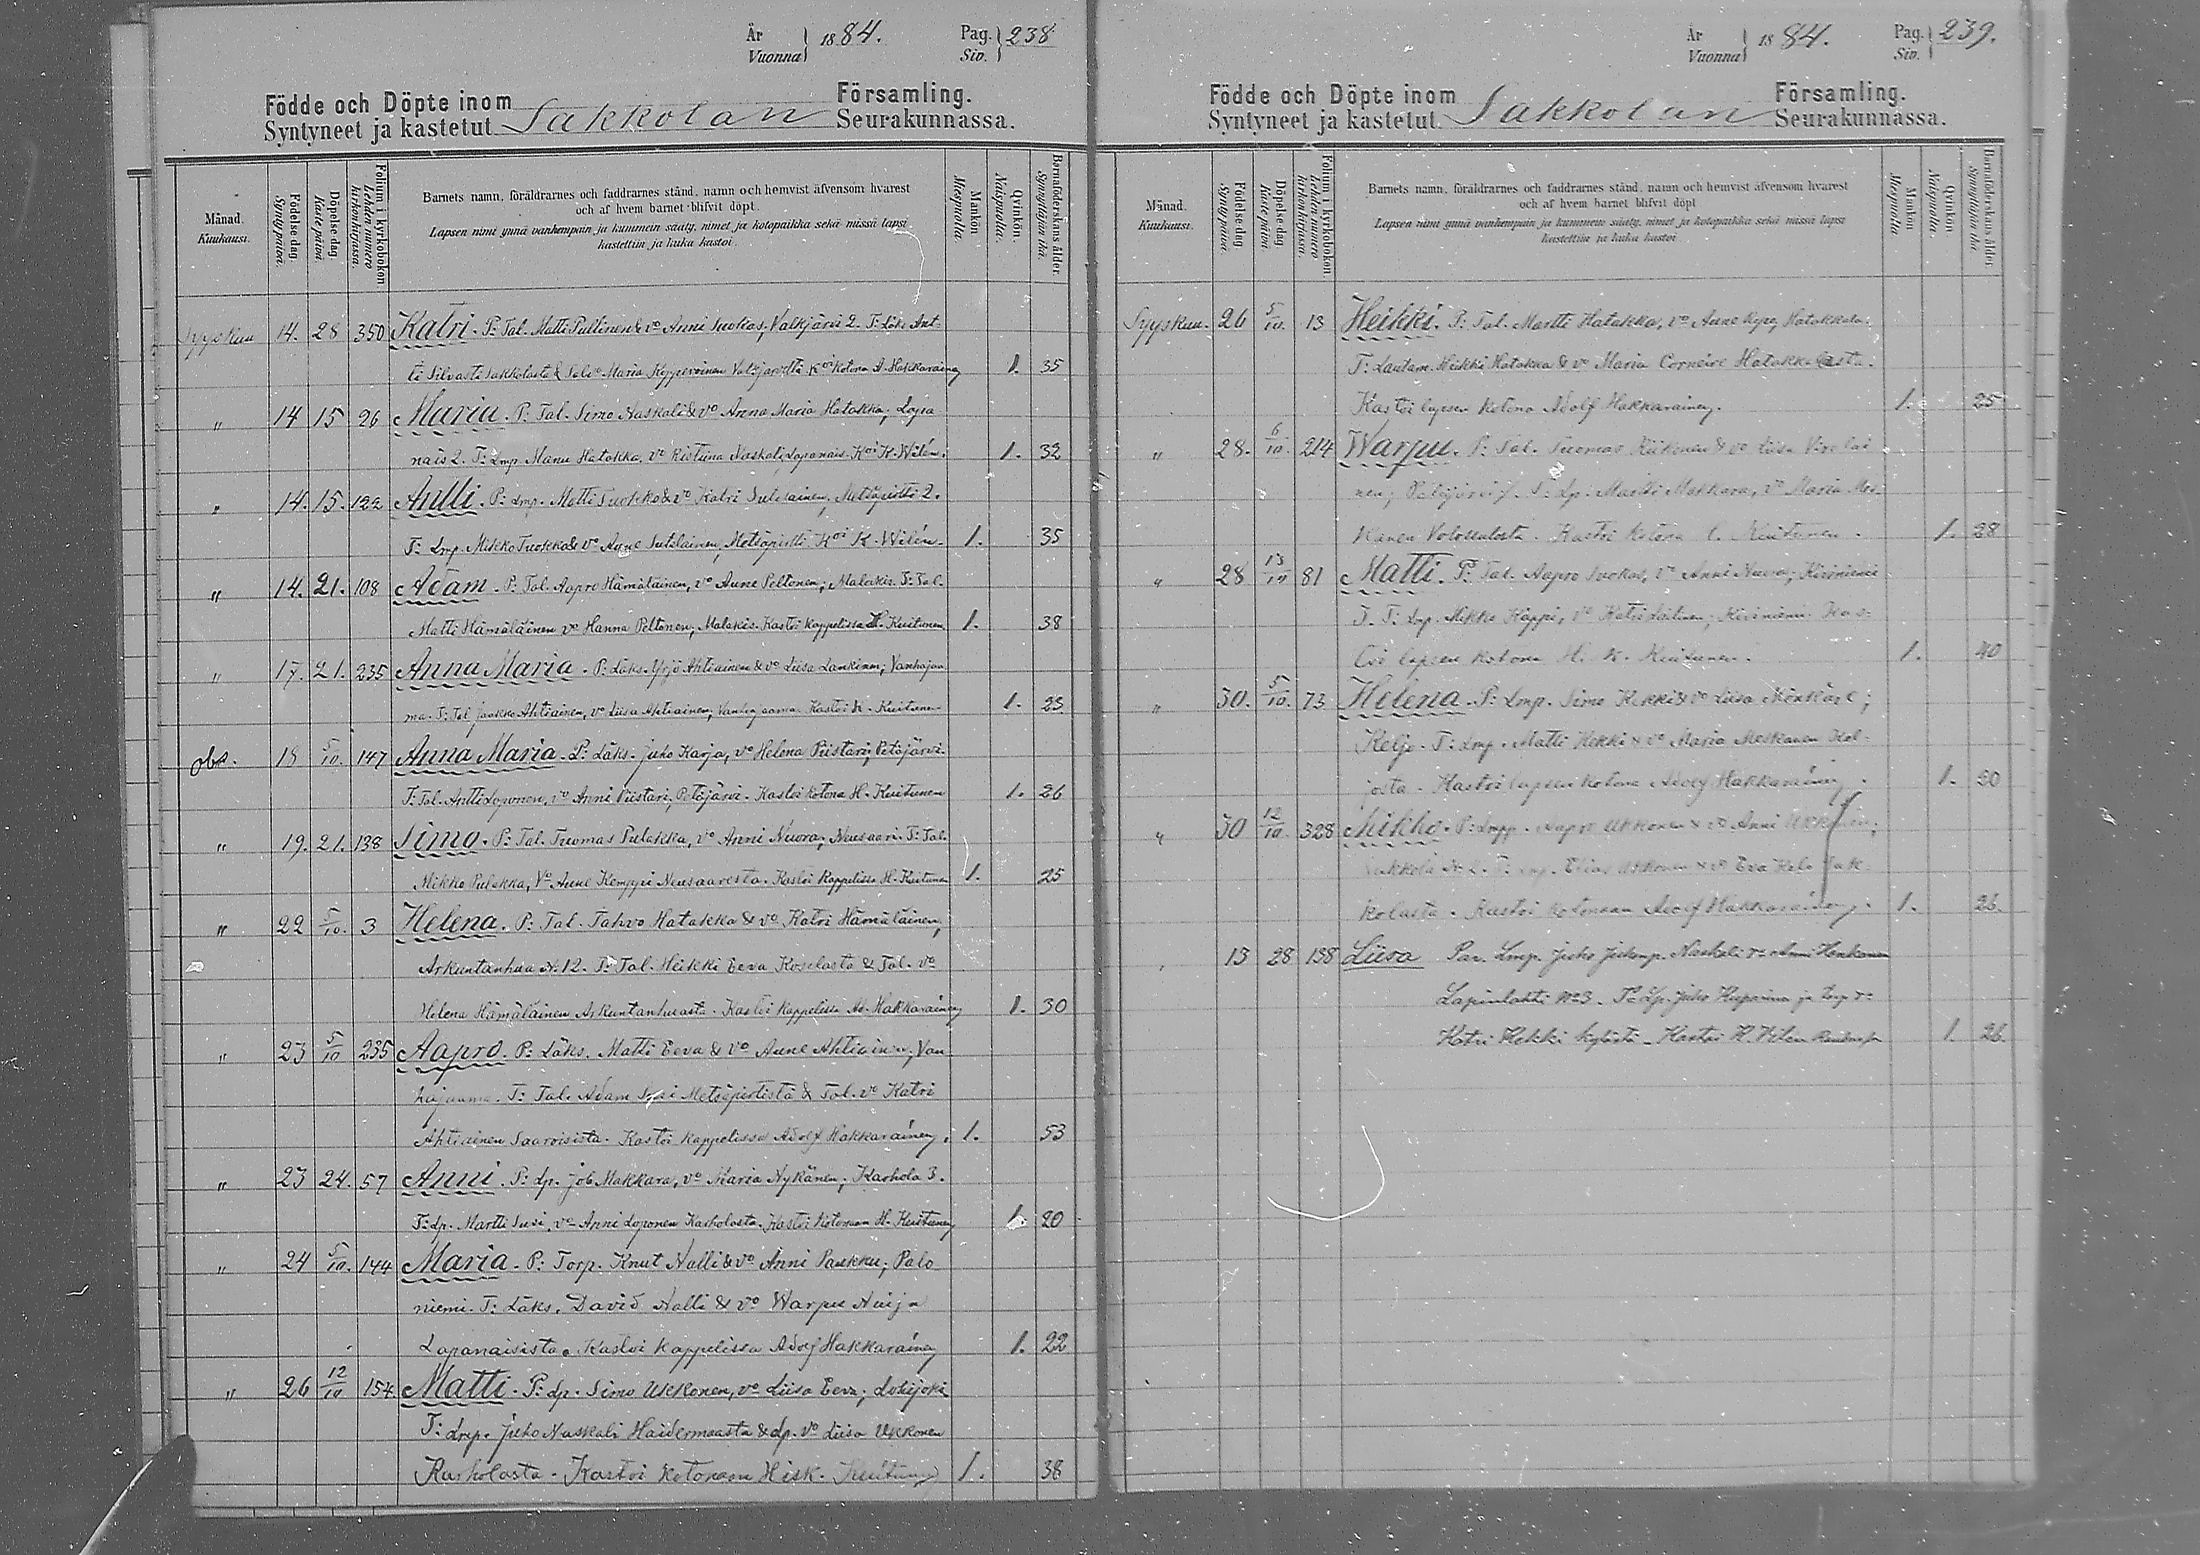 År
Vuonna 1884.
Pag.
Siv. 238
Födde och Döpte inom
Syntyneet ja kastetut Sakkolan
Församling.
Seurakunnassa.
Månad.
Kuukausi.
Födelsedag.
Syntypäivä.
Döpelsedag.
Kastepäivä
Folium i kyrkobokon
Lehden numero kirkonkirjassa.
Barnets namn, föräldrarnes och faddrarnes stånd, namn och hemvist äfvensom hvarest
och af hvem barnet blifvit döpt.
Lapsen nimi ynnä vanhempain ja kummein sääty, nimet ja kotopaikka sekä missä lapsi
kastettiin ja kuka kastoi.
Mankön.
Miespuolia.
Qvinkön.
Naispuolia.
Barnaföderskans ålder.
Synnyttäjän ikä
Syyskuu 14. 28 350 Katri. P: Tal. Matti Pullinen & vo Anni Suokas, Valkjärvi 2. T: Läks. Ant-
ti Silvasti Sakkolasta & Maria Kopperoinen Valkjärveltä Koi kotona A. Hakkarainen 1. 35
" 14 15 26 Maria. P: Tal. Simo Naskali & vo Anna Maria Hatakka, Lopa
nais 2. T: Lmp. Manu Hatakka, vo Ristiina Naskali, Lopanais. Koi K. Wilén. 1. 32
" 14. 15. 122 Antti. P: Lmp. Matti Tuokko & vo Katri Sutelainen, Metsäpirtti 2.
T: Lmp. Mikko Tuokko & vo Anne Sutelainen, Metsäpirtti Koi K. Wilén. 1. 35
" 14. 21. 108 Adam. P: Tal. Aapro Hämäläinen, vo Anne Peltonen, Malakis. T: Tal.
Matti Hämäläinen vo Hanna Peltonen, Malakis. Kastoi kappelissa H. Kuitunen 1. 38
" 17. 21. 235 Anna Maria. P: Läks. Yrjö Ahtiainen & vo Liisa Lankinen, Vanhajaa
ma. T: Tal. Jaakko Ahtiainen, vo Liisa Ahtiainen, Vanhajaama. Kastoi H. Kuitunen 1. 23
obs. 18 5/10. 147 Anna Maria. P: Läks. Juho Karja, vo Helena Piistari, Petäjärvi.
T: Tal. Antti Loponen, vo Anni Piistari, Petäjärvi. Kastoi kotona H. Kuitunen 1. 26
" 19. 21. 138 Simo. P: Tal. Tuomas Pulakka, vo Anni Nuora, Neusaari. T: Tal.
Mikko Pulakka, vo Anne Kemppi Neusaaresta. Kastoi kappelissa H. Kuitunen 1. 25
" 22 5/10. 3 Helena. P: Tal. Tahvo Hatakka & vo Katri Hämäläinen,
Arkuntanhua N:12. T: Tal. Heikki Eeva Koselasta & Tal. vo
Helena Hämäläinen Arkuntanhuasta. Kastoi kappelissa Ad. Hakkarainen 1. 30
" 23 5/10 235 Aapro. P: Läks. Matti Eeva & vo Anne Ahtiainen, Van
hajaama. T: Tal. Adam Susi Metsäpirtistä & Tal. vo Katri
Ahtiainen Saaroisista. Kastoi kappelissa Adolf Hakkarainen. 1. 53
" 23 24. 57 Anni. P: Lp. Job Makkara, vo Maria Nykänen, Karhola 3.
T: Lp. Martti Susi, vo Anni Loponen Karholasta. Kastoi kotonaan H. Kuitunen 1. 20
" 24 5/10. 144 Maria. P: Torp. Knut Nalli & vo Anni Paukku, Palo
niemi. T: Läks. David Nalli & vo Warpu Nuija
Lapanaisista. Kastoi kappelissa Adolf Hakkarainen 1. 22
" 26 12/10 154 Matti. P: Lp. Simo Ukkonen, vo Liisa Eeva, Lohijoki
T: Lmp. Juho Naskali Haidermaasta & Lp. vo Liisa Ukkonen
Karholasta. Kastoi kotonaan Hisk. Kuitunen 1. 38
År
Vuonna 1884.
Pag.
Siv. 239.
Födde och Döpte inom
Syntyneet ja kastetut Sakkolan
Församling.
Seurakunnassa.
Månad.
Kuukausi.
Födelsedag.
Syntypäivä.
Döpelsedag
Kastepäivä.
Folium i kyrkobokon
Lehden numero kirkonkirjassa.
Barnets namn, föräldrarnes och faddrarnes stånd, namn och hemvist äfvensom hvarest
och af hvem barnet blifvit döpt
Lapsen nimi ynnä vanhempain ja kummein sääty, nimet ja kotopaikka sekä missä lapsi
kastettiin ja kuka kastoi
Mankön
Miespuolia.
Qvinkön.
Naispuolia.
Barnaföderskans ålder.
Synnyttäjän ikä
Syyskuu. 26 5/10. 13 Heikki. P: Tal. Martti Hatakka, vo Anne Kype, Hatakkala.
T: Lautam. Heikki Hatakka & vo Maria Hatakkalasta.
Kastoi lapsen kotona Adolf Hakkarainen. 1. 25
" 28. 6/10. 214 Warpu. P: Tal. Tuomas Kiikonen & vo Liisa Virolai
nen, Petäjärvi. T: Lp. Martti Makkara, vo Maria Mes-
kanen Volossulasta. Kastoi kotona Kuitunen. 1. 28
" 28 13/10 81 Matti. P: Tal. Aapro Suokas, vo Anni Nuora, Kiviniemi
T: Lmp. Mikko Kappi, vo Katri Laitinen, Kiviniemi. Kas-
toi lapsen kotona H. K. Kuitunen. 1. 40
" 30. 5/10. 73 Helena. P: Lmp. Simo Kekki & vo Liisa Mönkäre;
Kelja. T: Lmp. Matti Kekki & vo Maria Meskanen Kel-
josta. Kastoi lapsen kotona Adolf Hakkarainen. 1. 20
" 30 12/10 328 Mikko. P: Lmp. Aapro Ukkonen & vo Anni Ukkonen;
Sakkola N:2. T: Lmp. Elias Ukkonen & vo Eva Kelo Sak-
kolasta. Kastoi kotonaan Adolf Hakkarainen. 1. 26.
" 13 28 138 Liisa Par. Lmp. Juho Juhonp. Naskali vo Anni Henkanen
Lapinlahti No 3. T: Lp. Juho Kuparinen ja Lmp vo
Katri Kekki kylästä. Kastoi K. Wilén 1. 26.